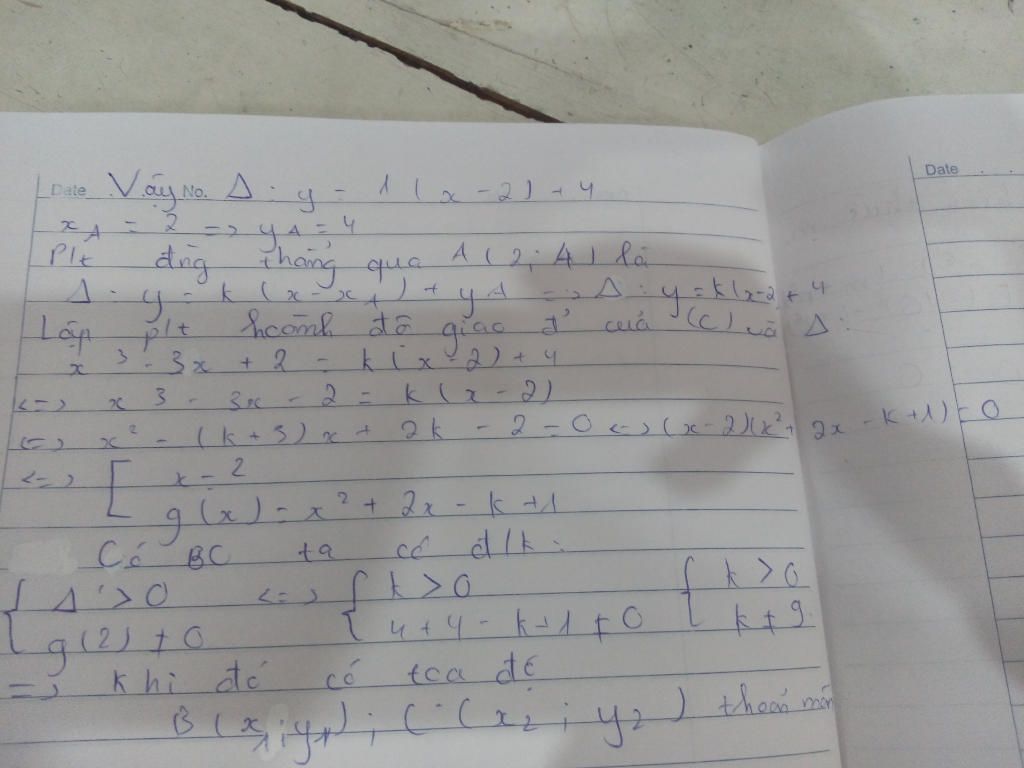 Date Vậy No. Δ : y = 1 (x - 2) + 4
Date
x_A = 2 => y_A = 4
Plt đtg thẳng qua A (2; 4) là
Δ : y = k (x - x_A) + y_A => Δ : y = k(x-2) + 4
Lập plt hoành độ giao đ' của (C) và Δ :
x³ - 3x + 2 = k(x - 2) + 4
<=> x³ - 3x - 2 = k (x - 2)
<=> x² - (k + 3) x + 2k - 2 = 0 <=> (x-2)(x² + 2x - k + 1) = 0
<=> [ x = 2
g(x) = x² + 2x - k + 1
Có BC ta có đ/k :
{ Δ' > 0 <=> { k > 0 { k > 0
g(2) ≠ 0 4 + 4 - k + 1 ≠ 0 k ≠ 9.
=> Khi đó có tọa độ
B (x₁; y₁) ; C (x₂ ; y₂) thoả mãn